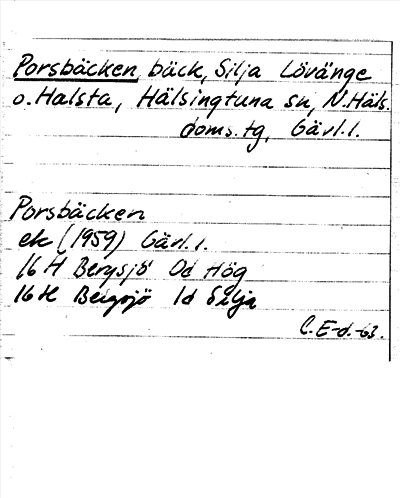 Porsbäcken, bäck, Silja Lövänge
o. Halsta, Hälsingtuna sn, N. Häls.
doms.tg, Gävl. l.
Porsbäcken
ek (1959) Gävl. l.
16 H Bergsjö 0d Hög
16 H Bergsjö 1d Silja
C. E-d. -63.